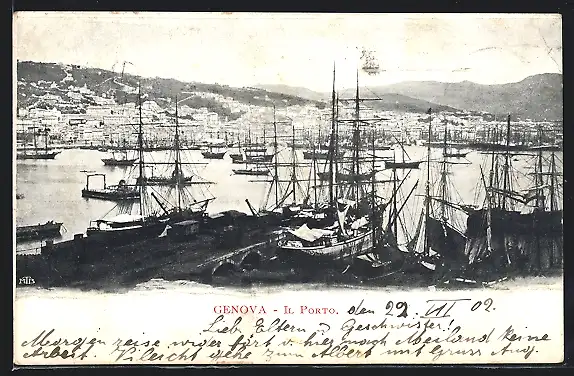 GENOVA - IL PORTO.
den 29. VII 02.
Lieb Eltern u Geschwister!
Morgen reise wider fort v. hier nach Meiland keine
Arbeit. Vileicht gehe zum Albert mit Gruss Aug.